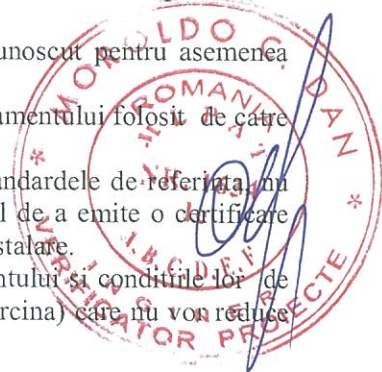 unoscut pentru asemenea
amentului folosit de catre
andardele de referinta, nu
l de a emite o certificare
stalare.
ntului si conditiile lor de
rcina) care nu vor reduce
MOROLDO C. DAN
ROMANIA
I.B.C.D.E.F
INGINER
VERIFICATOR PROIECTE